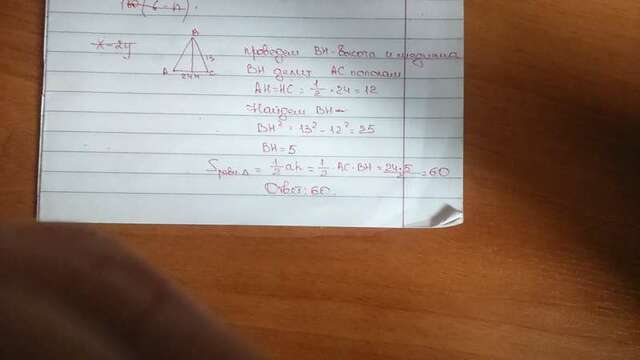 x - 2y
B
13
A 24 H C
проводим BH - высота и медиана
BH делит AC пополам
AH = HC = 1/2 · 24 = 12
Найдём BH -
BH² = 13² - 12² = 25
BH = 5
S равн. Δ = 1/2 ah = 1/2 · AC · BH = 24·5/2 = 60
Ответ: 60.